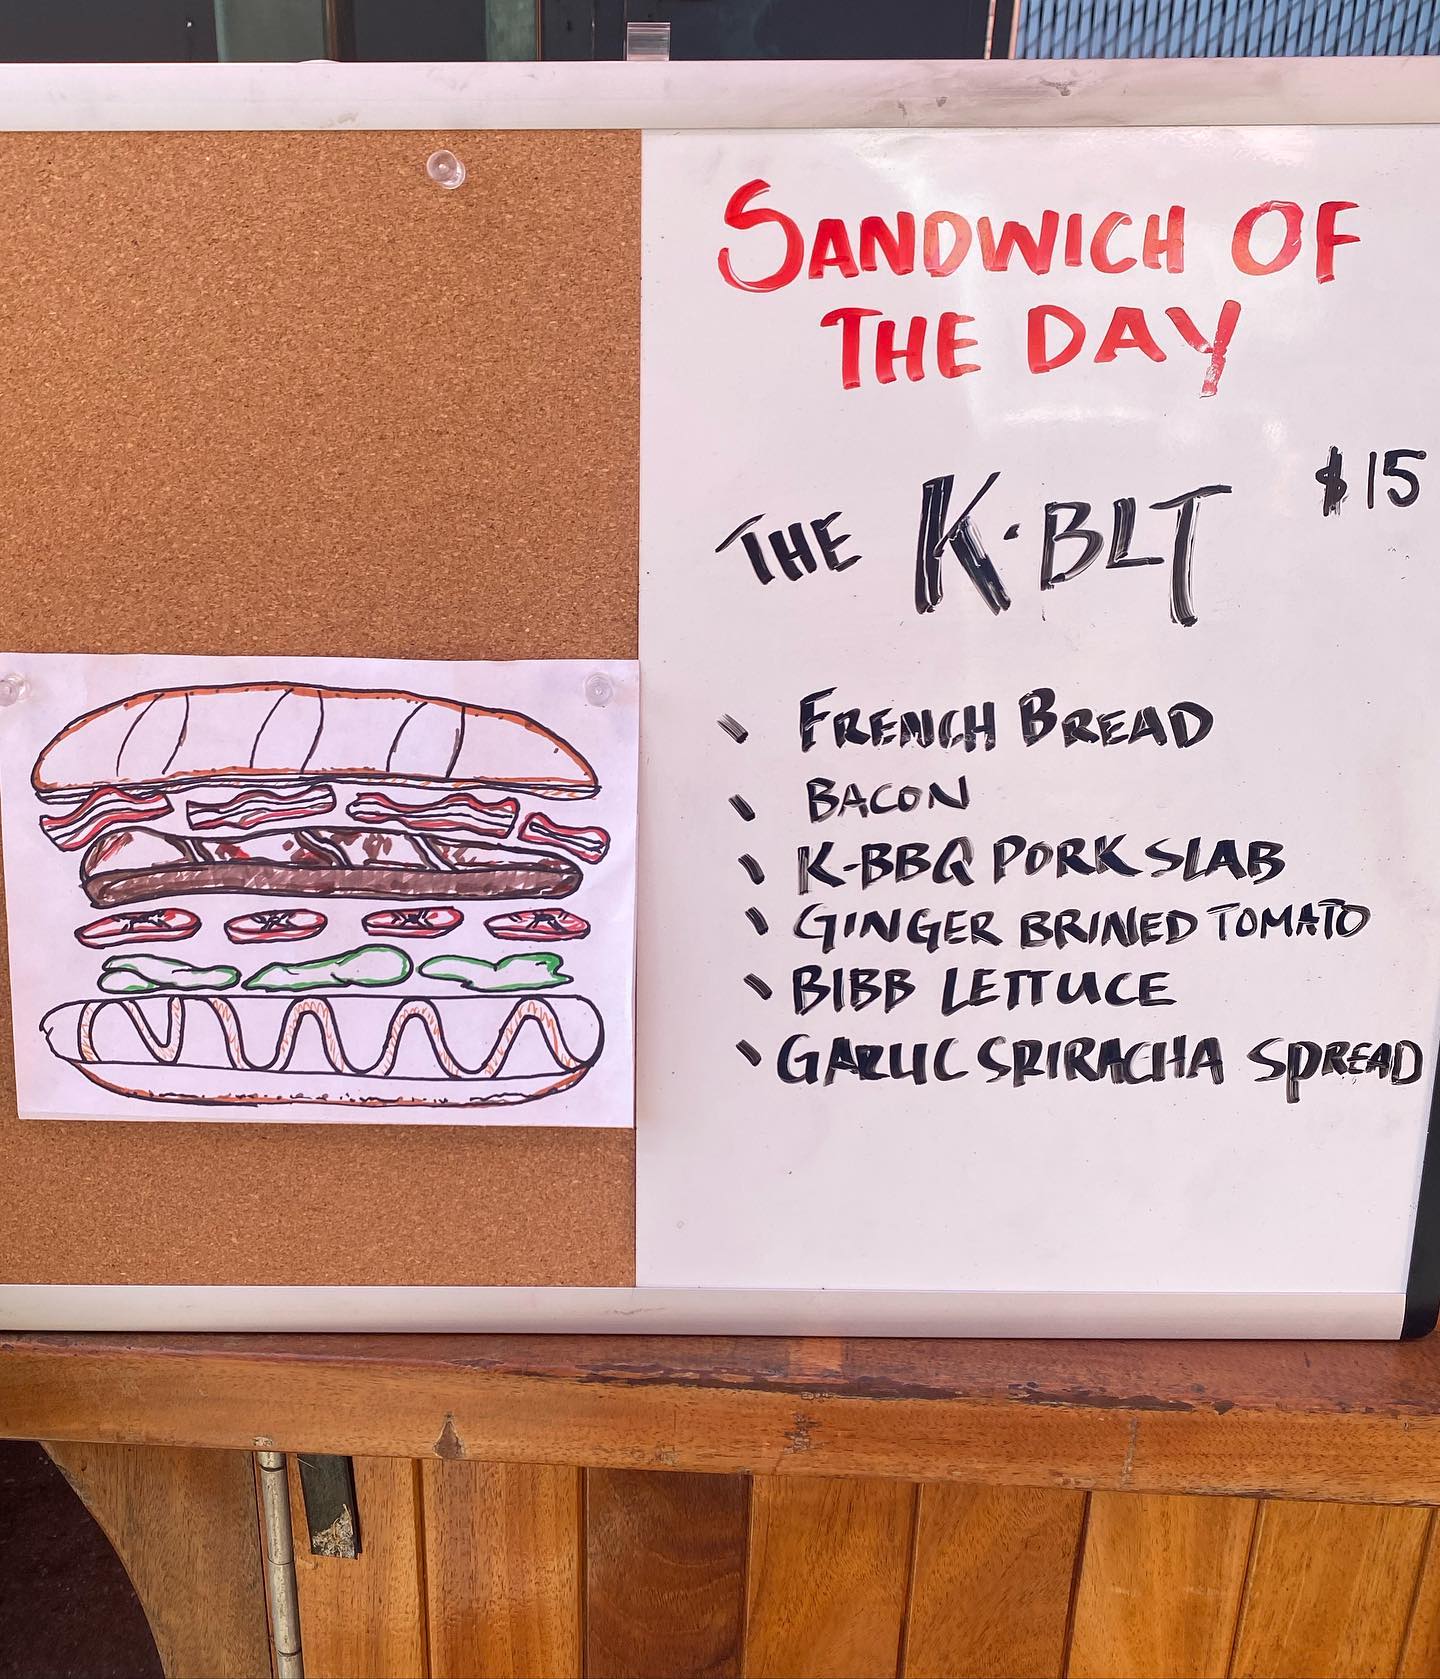 SANDWICH OF
THE DAY
$15
THE K·BLT
• FRENCH BREAD
• BACON
• K-BBQ PORK SLAB
• GINGER BRINED TOMATO
• BIBB LETTUCE
• GARLIC SRIRACHA SPREAD